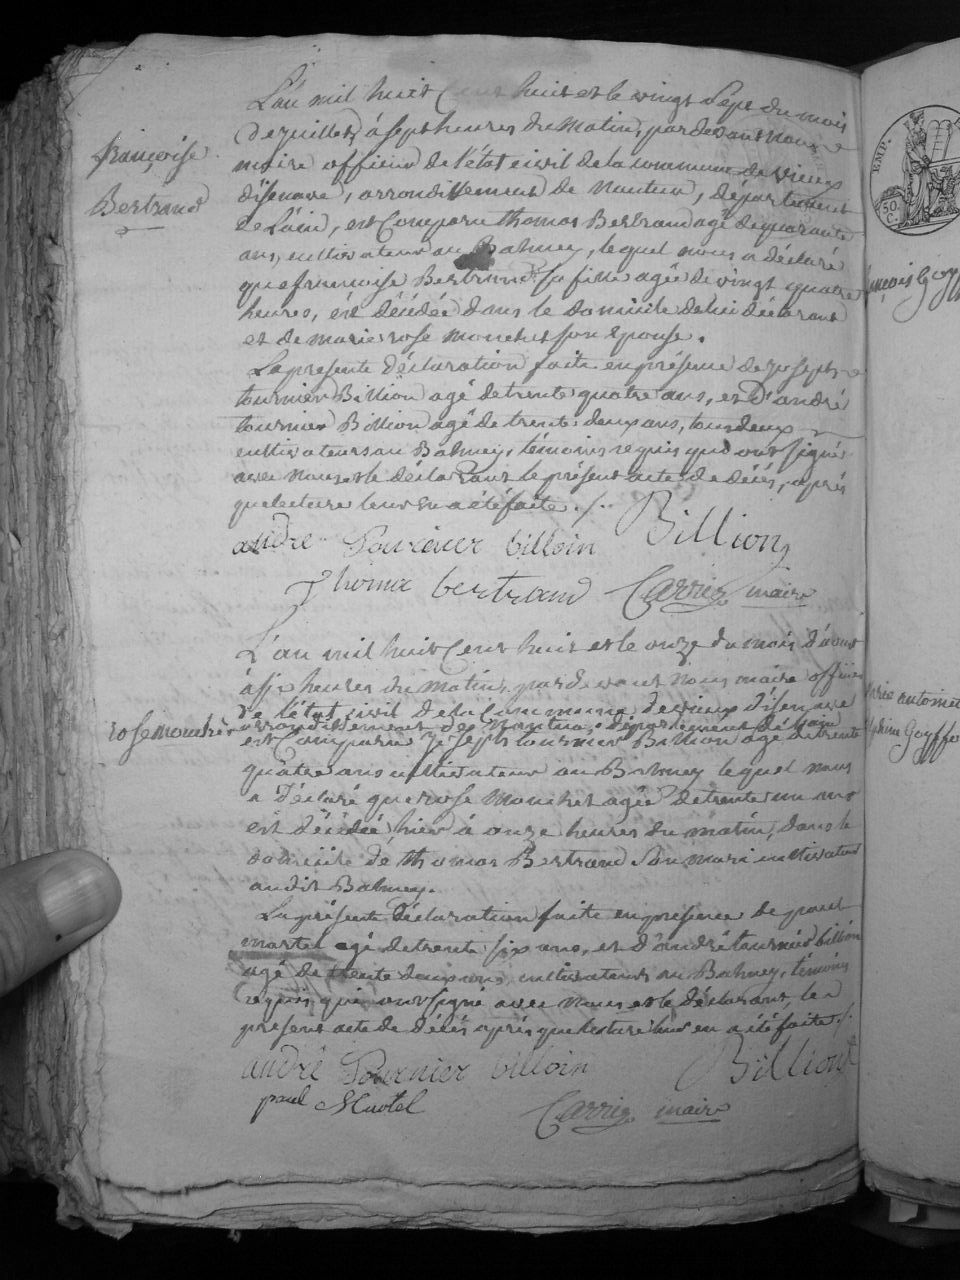 L'an mil huit Cent huit et le vingt Sept du mois
De juillet, à sept heures du Matin, pardevant nous
maire officier de l'état civil de la commune de vieux
françoise
Bertrand
d'isenave, arrondissement de Nantua, département
de L'ain, est Comparu thomas Bertrand agé de quarante
ans, cultivateur au Balmey, lequel nous a déclaré
que françoise Bertrand sa fille agée de vingt quatre
heures, est décédée dans le domicile de lui déclarant
et de marie rose monchet son épouse.
La presente déclaration faite en présence de joseph
tournier Billion agé de trente quatre ans, et d'andré
tournier Billion agé de trente deux ans, tous deux
cultivateurs au Balmey, témoins requis qui ont signé
avec nous et le déclarant le présent acte de décès, après
que lecture leur en a été faite ./.
andre Tournier billoin Billion
Thoma bertrand Carrier maire
L'an mil huit Cent huit et le onze du mois d'aout
à six heures du Matin, pardevant nous maire officier
de l'état civil de la Commune de vieux d'isenave
rose monchet
arrondissement de Nantua, département de l'ain
est Comparu joseph tournier Billion agé de trente
quatre ans cultivateur au Balmey lequel nous
a déclaré que rose Monchet agée de trente un ans
est décédée hier à onze heures du matin, dans le
domicile de thomas Bertrand Son mari cultivateur
au dit Balmey.
La présente déclaration faite en présence de paul
martel agé de trente six ans, et d'andré tournier billion
agé de trente deux ans cultivateurs au Balmey, témoins
requis qui ont signé avec nous et le déclarant, le
présent acte de décès après que lecture leur en a été faite ./.
andré Tournier billoin Billion
paul Martel
Carrier maire
EMP.
50.
C.